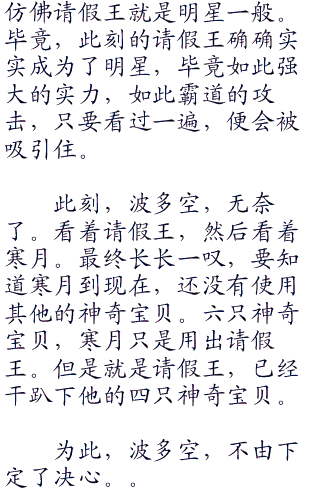 仿佛请假王就是明星一般。
毕竟，此刻的请假王确确实
实成为了明星，毕竟如此强
大的实力，如此霸道的攻
击，只要看过一遍，便会被
吸引住。
此刻，波多空，无奈
了。看着请假王，然后看着
寒月。最终长长一叹，要知
道寒月到现在，还没有使用
其他的神奇宝贝。六只神奇
宝贝，寒月只是用出请假
王。但是就是请假王，已经
干趴下他的四只神奇宝贝。
为此，波多空，不由下
定了决心。。